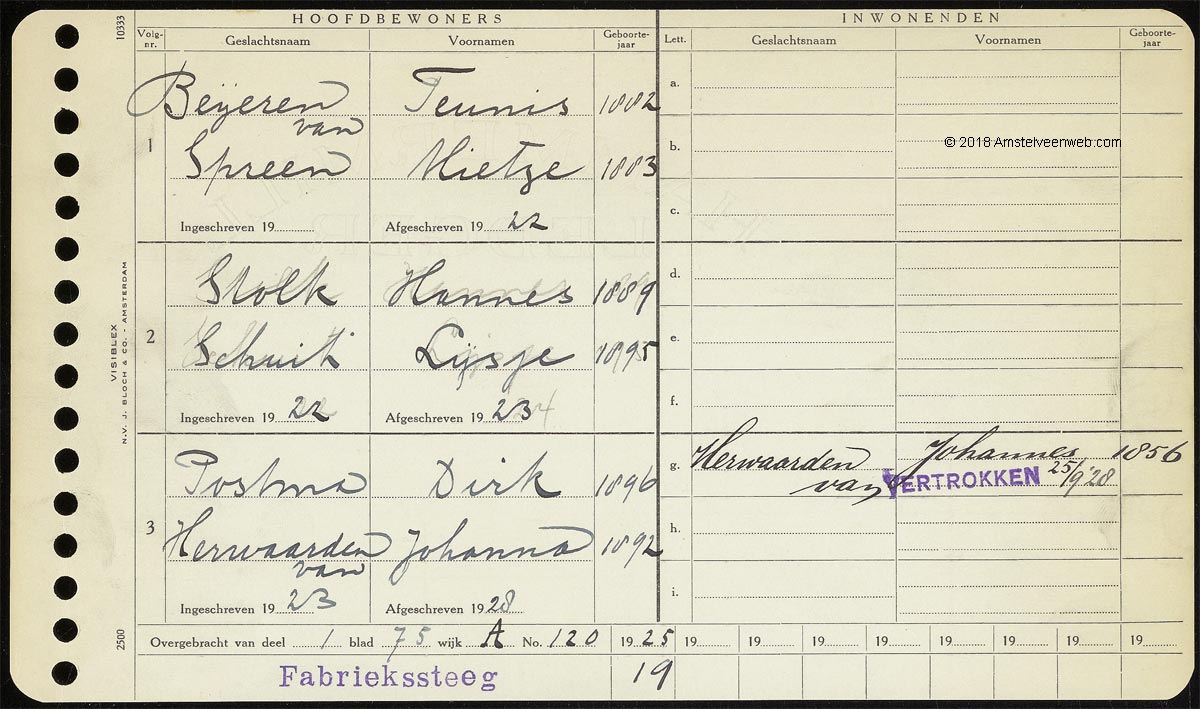 HOOFDBEWONERS INWONENDEN
Volg-nr. Geslachtsnaam Voornamen Geboorte-jaar Lett. Geslachtsnaam Voornamen Geboorte-jaar
10333
Beijeren van Teunis 1882
1
Spreen Mietze 1883
Ingeschreven 19 Afgeschreven 19 22
a.
b.
© 2018 Amstelveenweb.com
c.
Stolk Hannes 1889
2
Schuit Lijsje 1895
Ingeschreven 19 22 Afgeschreven 19 23
d.
e.
f.
VISIBLEX
N.V. J. BLOCH & CO. - AMSTERDAM
Postma Dirk 1896
3
Herwaarden van Johanna 1892
Ingeschreven 19 23 Afgeschreven 19 28
g. Herwaarden van Johannes 1856
VERTROKKEN 25/9 '28
h.
i.
2500
Overgebracht van deel 1 blad 75 wijk A No. 120 19 25 19 19 19 19 19 19 19
Fabriekssteeg 19